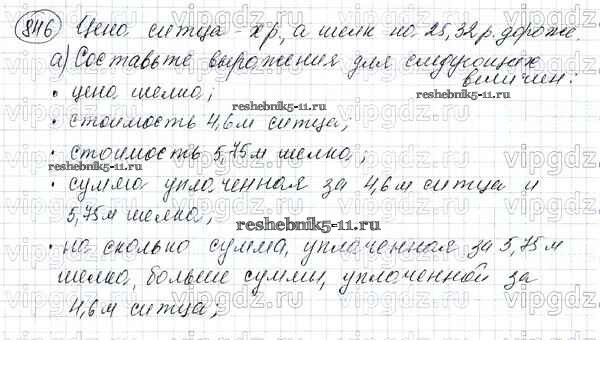 846 Цена ситца - х р, а шелк на 25,32 р. дороже.
а) Составьте выражения для следующих
величин:
• цена шелка;
• стоимость 4,6 м ситца;
• стоимость 5,75 м шелка;
• сумма уплаченная за 4,6 м ситца и
5,75 м шелка;
• на сколько сумма, уплаченная за 5,75 м
шелка, больше суммы, уплаченной за
4,6 м ситца;
reshebnik5-11.ru
reshebnik5-11.ru
reshebnik5-11.ru
reshebnik5-11.ru
vipgdz.ru